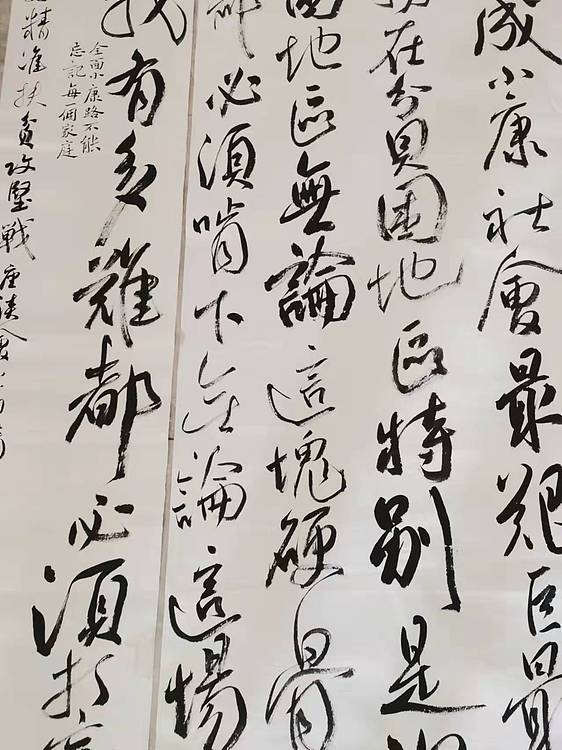 成小康社會最艱巨最
在貧困地区特别是
困地区無論這塊硬骨
都必須啃下無論這場
有多難都必須打
全面小康路不能
忘記每一個家庭
精准扶貧攻堅戰座談會上的